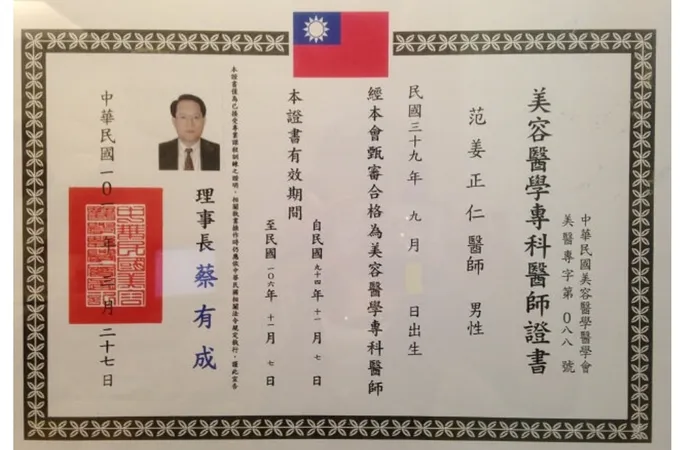 中華民國美容醫學醫學會
美醫專字第 0八八 號
美容醫學專科醫師證書
范姜正仁醫師 男性
民國三十九年 九月 日出生
經本會甄審合格為美容醫學專科醫師
本證書有效期間
自民國九十四年十一月七日
至民國一0六年十一月七日
理事長 蔡有成
本證書僅為已接受專業課程訓練之證明,相關執業操作時仍應依中華民國相關法令規定執行,謹此宣告
中華民國一0一年一二月二十七日